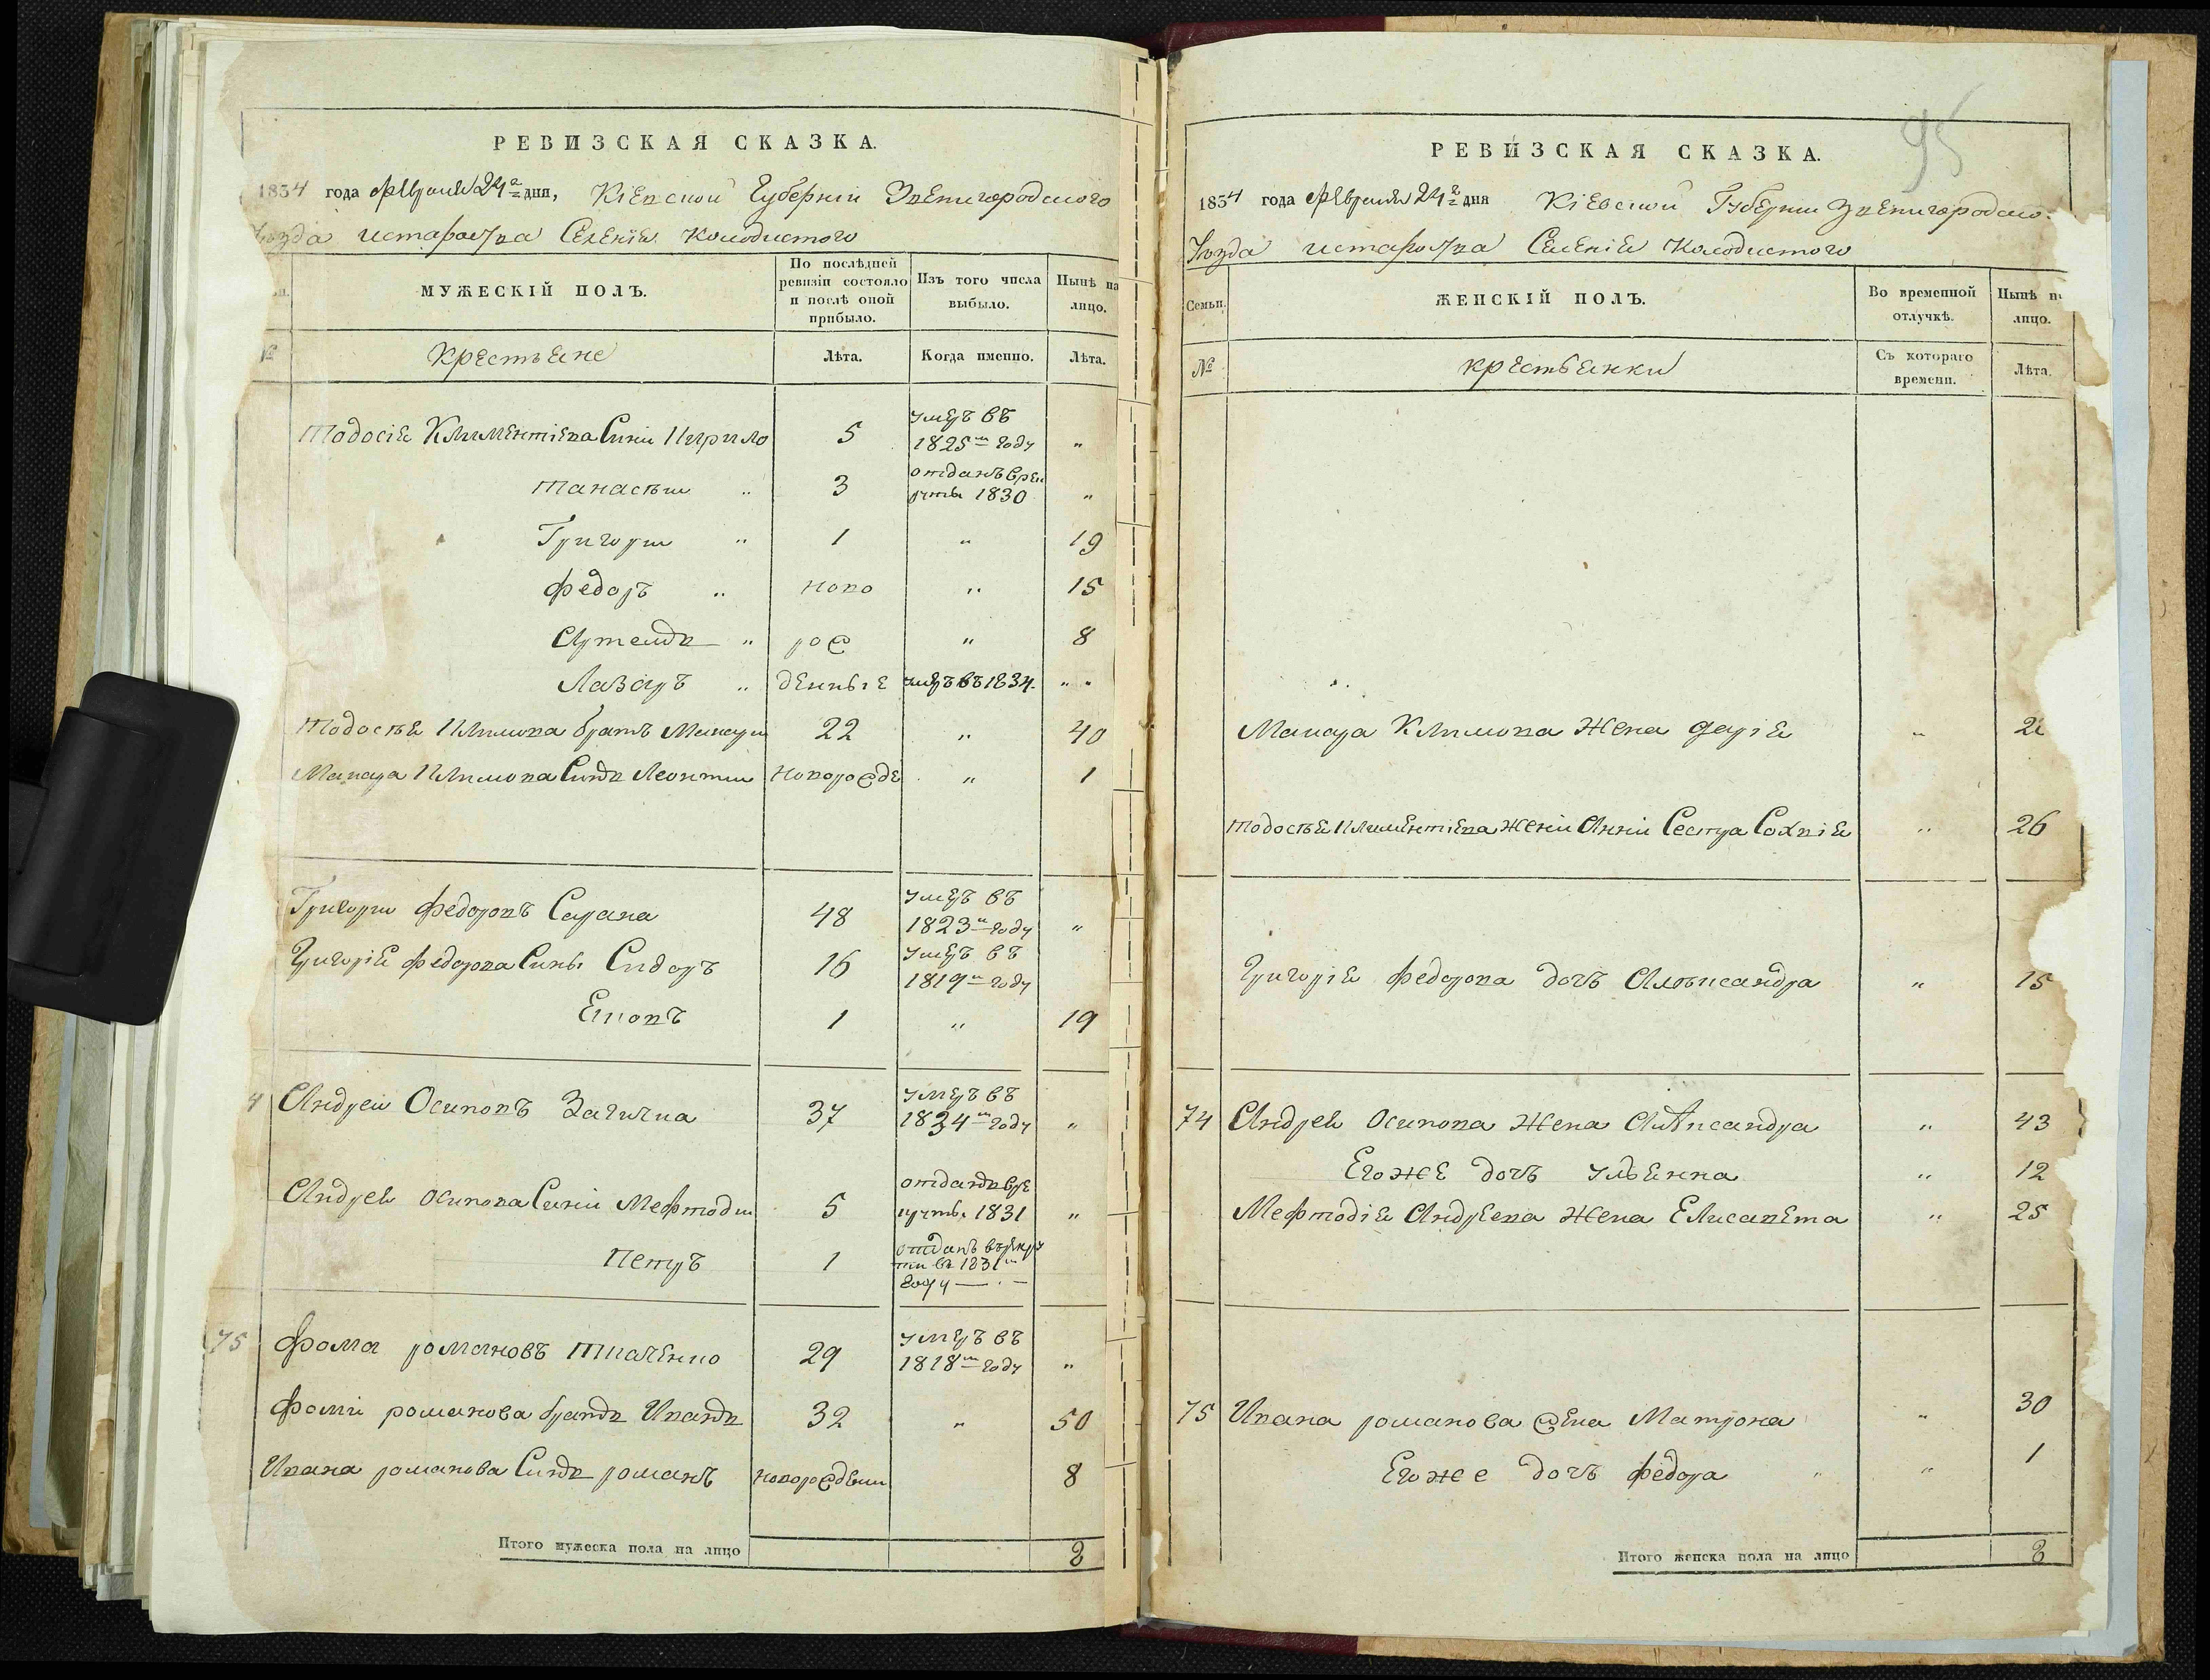 РЕВИЗСКАЯ СКАЗКА.
1834 года Февраля 24го дня, Кіевской Губерніи Звенигородского
уезда истароства Селенія Колодистого
МУЖЕСКІЙ ПОЛЪ.
По послѣдней ревизіи состояло и послѣ оной прибыло.
Изъ того числа выбыло.
Нынѣ на лицо.
№
Крестьяне
Лѣта.
Когда именно.
Лѣта.
Тодосія Климентіева Сини Кирило 5 умеръ въ 1825м году "
Танасъи " 3 отданъ вре круты 1830 "
Григори " 1 " 19
Федоръ " ново " 15
Артемъ " рож " 8
Лазаръ " денные умеръ въ 1834. " "
Тодосъя Климова братъ Макари 22 " 40
Макара Климова Синъ Леонти новорожде " 1
Григори Федоровъ Сарана 48 умеръ въ 1823м году "
Григорія Федорова Сины Сидоръ 16 умеръ въ 1819м году
Яковъ 1 " 19
4 Андреи Осиповъ 37 умеръ въ 1834м году "
Андрея Осипова Сини Мефтоди 5 отданъ вре круты 1831 "
Петръ 1 отданъ въ рекру ти въ 1831м году
75 Фома романовъ Ткаченко 29 умеръ въ 1818м году "
Фоми романова братъ Иванъ 32 " 50
Ивана романова Синъ романъ новорожденни 8
Итого мужеска пола на лицо 8
95
РЕВИЗСКАЯ СКАЗКА.
1834 года Февраля 24го дня Кіевской Губерніи Звенигородско.
Уезда истароства Селенія Колодистого
Семьи.
ЖЕНСКІЙ ПОЛЪ.
Во временной отлучкѣ.
Нынѣ на лицо.
№
крестьянки
Съ котораго времени.
Лѣта.
Макара Климова Жена дарія "
Тодосъя Климентіева жени Анни Сестра Сохвія " 26
Григорія Федорова дочъ Алъксандра " 15
74 Андрея Осипова Жена Алѣксандра " 43
Егоже дочъ Ульянна " 12
Мефтодія Андреева Жена Елисавета " 25
75 Ивана романова жена Матрона " 30
Егоже дочъ Федора " 1
Итого женска пола на лицо 8